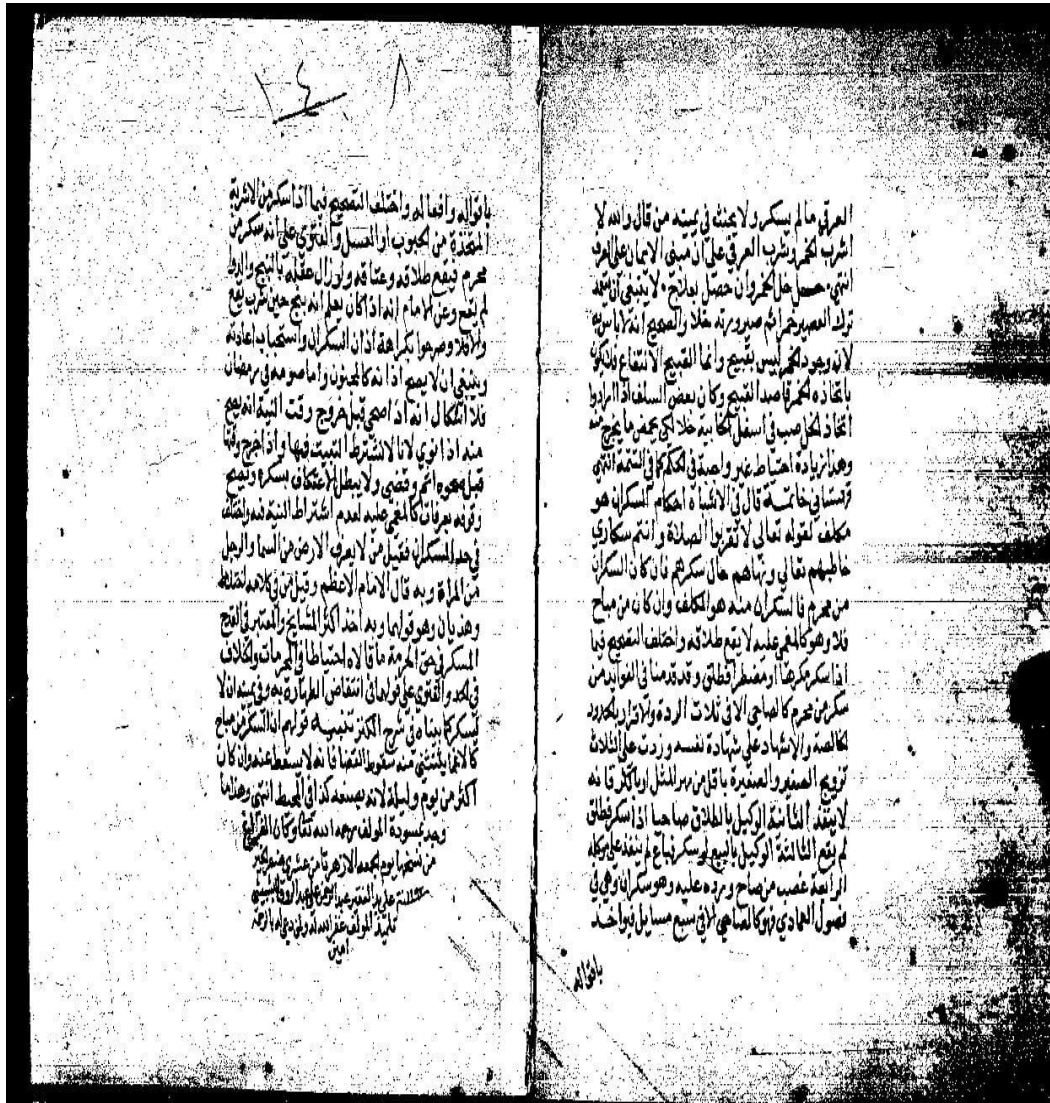 العرقي ما لم يسكر ولا يحنث في يمينه من قال والله لا
اشرب الخمر وشرب العرقي على ان مبنى الايمان على العرف
انتهى حل الخمر وان حصل بعلاج لا ينبغي ان
ترك العصير خمرا ثم صيرورته خلا والصحيح انه لا باس به
لان وجود الخمر ليس بقبيح وانما القبيح الانتفاع
باتخاذه الخمر قاصد القبيح وكان بعض السلف اذا ارادوا
اتخاذ الخل صب في اسفل الخابية خلا لكي يحمض ما يخرج منه
وهذا زيادة احتياط غير واجبة في الحكم كما في التتمة انتهى
قهستاني خاتمة قال في الاشباه احكام السكران هو
مكلف لقوله تعالى لا تقربوا الصلاة وانتم سكارى
خاطبهم تعالى ونهاهم حال سكرهم فان كان السكران
من محرم فالسكران منه هو المكلف وان كان من مباح
فلا وهو كالمغمى عليه لا يقع طلاقه واختلف التصحيح فيما
اذا سكر مكرها او مضطرا فطلق وقد قدمنا في الفوايد من
سكر من محرم كالصاحي الا في ثلاث الردة والاقرار بالحدود
الخالصة والاشهاد على شهادة نفسه وزدت على الثلاث
تزويج الصغير والصغيرة باقل من مهر المثل او باكثر فانه
لا ينفذ الثانية الوكيل بالطلاق صاحيا اذا سكر فطلق
لم يقع الثالثة الوكيل بالبيع لو سكر فباع لم ينفذ على موكله
الرابعة غصب من صاح ورده عليه وهو سكران وهي في
فصول العمادي فهو كالصاحي الا في سبع مسايل فيواخذ
باقواله
٨ ٢٤
باقواله وافعاله واختلف التصحيح فيما اذا سكر من الاشربة
المتخذة من الحبوب او العسل والفتوى على انه سكر من
محرم فيقع طلاقه وعتاقه ولو زال عقله بالبنج
لم يقع وعن الامام انه اذا كان يعلم انه بنج حين شرب يقع
والا فلا وصرحوا بكراهة اذان السكران واستحباب اعادته
وينبغي ان لا يصح اذانه كالمجنون واما صومه في رمضان
فلا اشكال انه اذا صحى قبل خروج وقت النية انه يصح
منه اذا نوى لانا لا نشترط التبييت فيها واذا خرج وقتها
قبل صحوه اثم وقضى ولا يبطل الاعتكاف بسكره ويصح
وقوفه بعرفات كالمغمى عليه لعدم اشتراط النية فيه واختلف
في حد السكران فقيل من لا يعرف الارض من السما والرجل
من المراة وبه قال الامام الاعظم وقيل من في كلامه اختلاط
وهذيان وهو قولهما وبه اخذ اكثر المشايخ والمعتبر في القدح
المسكر في حق الحرمة ما قالاه احتياطا في الحرمات والخلاف
في الحد والفتوى على قولهما في انتقاض الطهارة به وفي يمينه ان لا
يسكر كما بيناه في شرح الكنز تنبيه قولهم ان السكر من مباح
كالاغما يستثنى منه سقوط القضا فانه لا يسقط عنه وان كان
اكثر من يوم وليلة لانه بصنعه كذا في المحيط انتهى وهذا ما
وجد بمسودة المولف رحمه الله تعالى وكان الفراغ
من نسختها يوم الجمعة الازهر ثامن عشري
على يد الفقير عبد
تلميذ المولف غفر الله له ولوالديه
امين